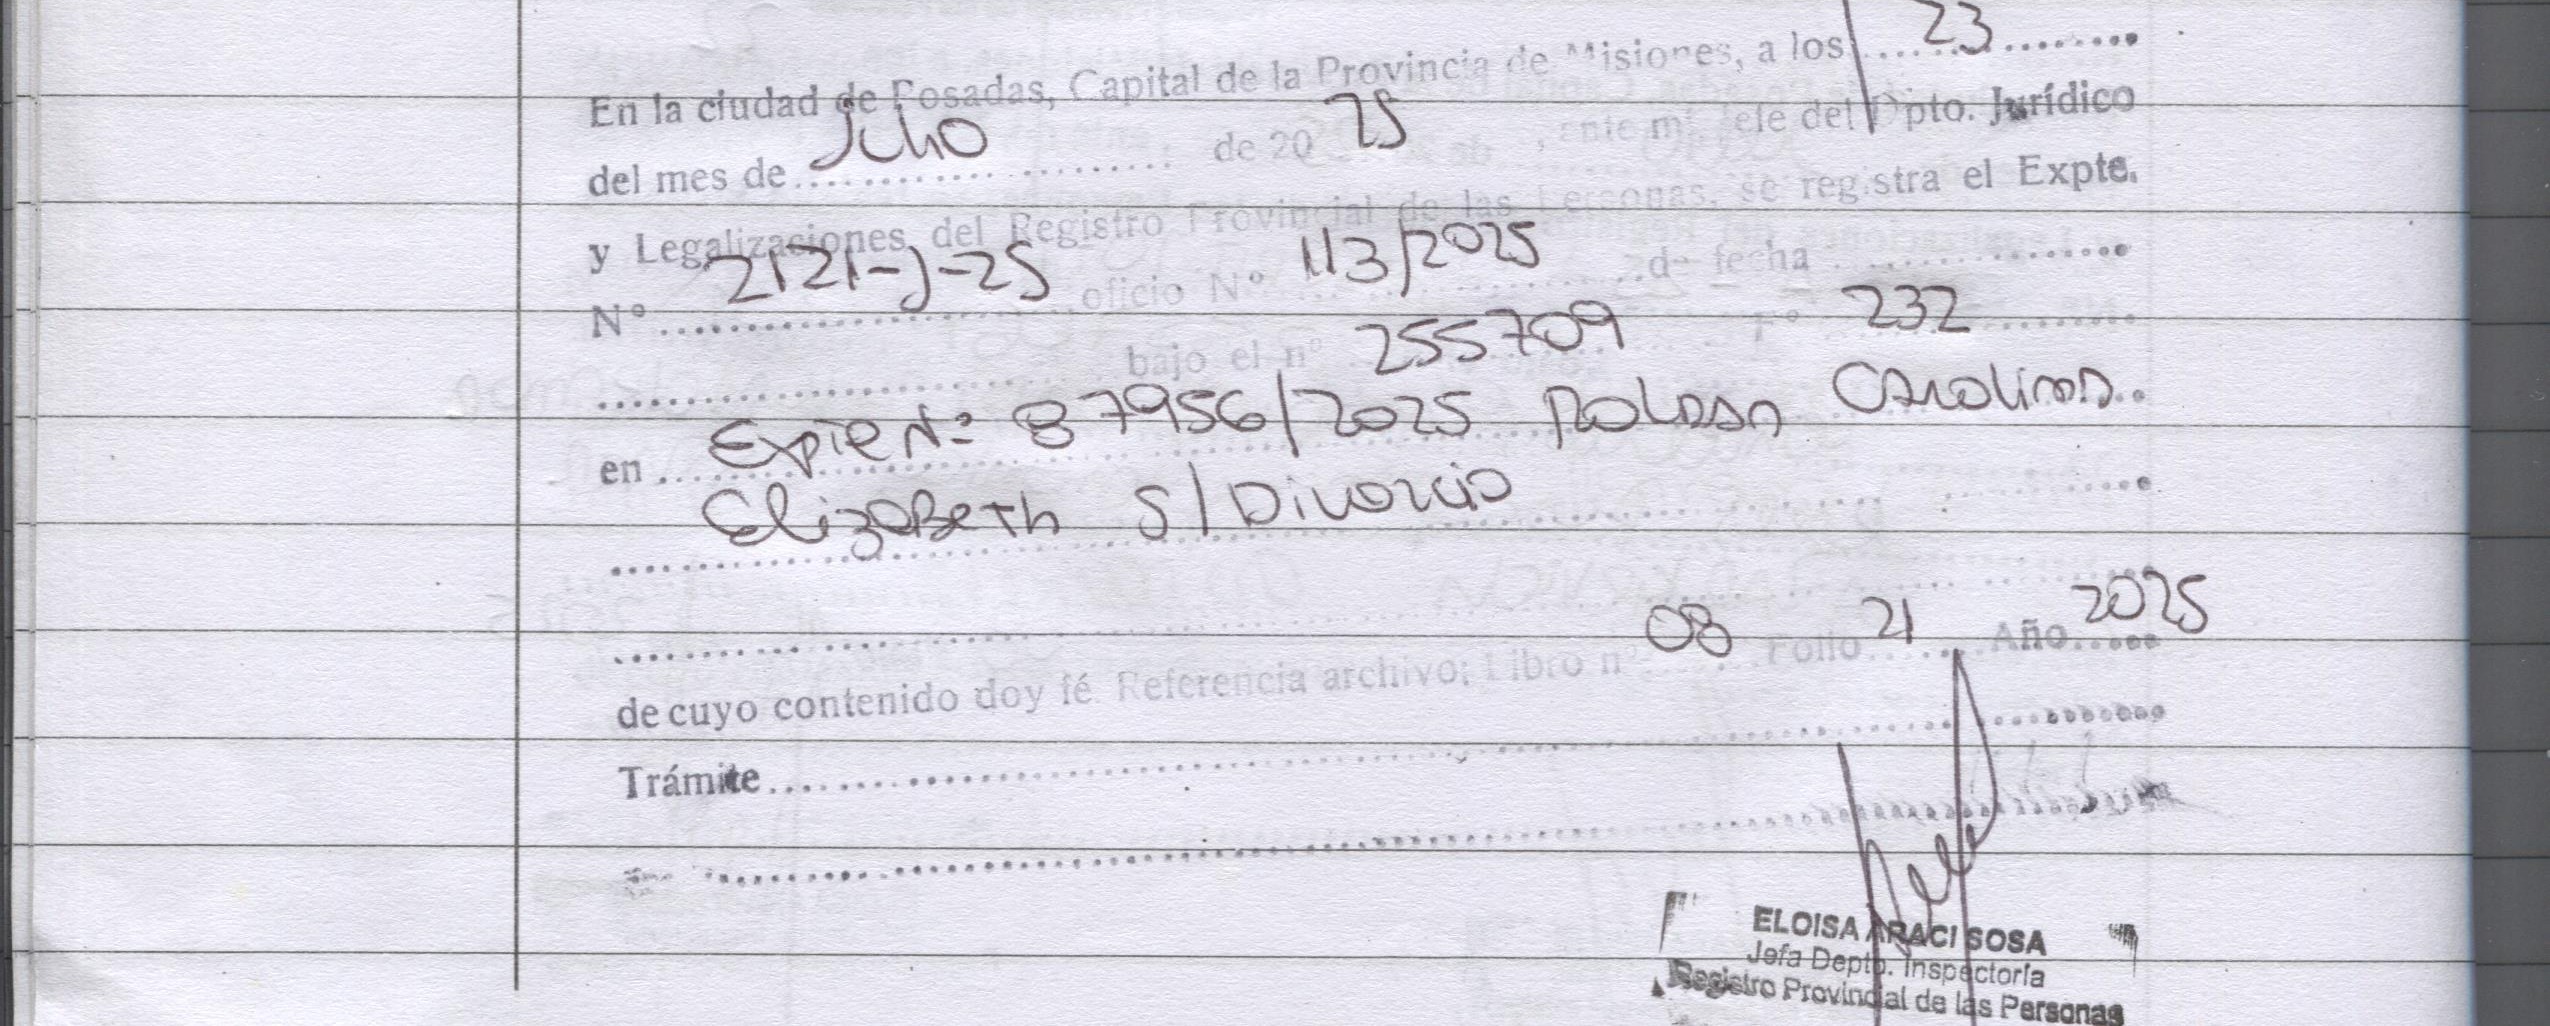 En la ciudad de Posadas, Capital de la Provincia de Misiones, a los 23
del mes de Julio de 2025, ante mi Jefe del Dpto. Jurídico
y Legalizaciones del Registro Provincial de las Personas, se registra el Expte.
Nº 2121-J-25 oficio Nº 113/2025 de fecha
bajo el nº 255709 Fº 232
en Expte Nº 87956/2025 Carolina
Elizabeth S/ Divorcio
de cuyo contenido doy fé. Referencia archivo; Libro nº 08 Folio 21 Año 2025
Trámite
ELOISA ARACI SOSA
Jefa Depto. Inspectoría
Registro Provincial de las Personas